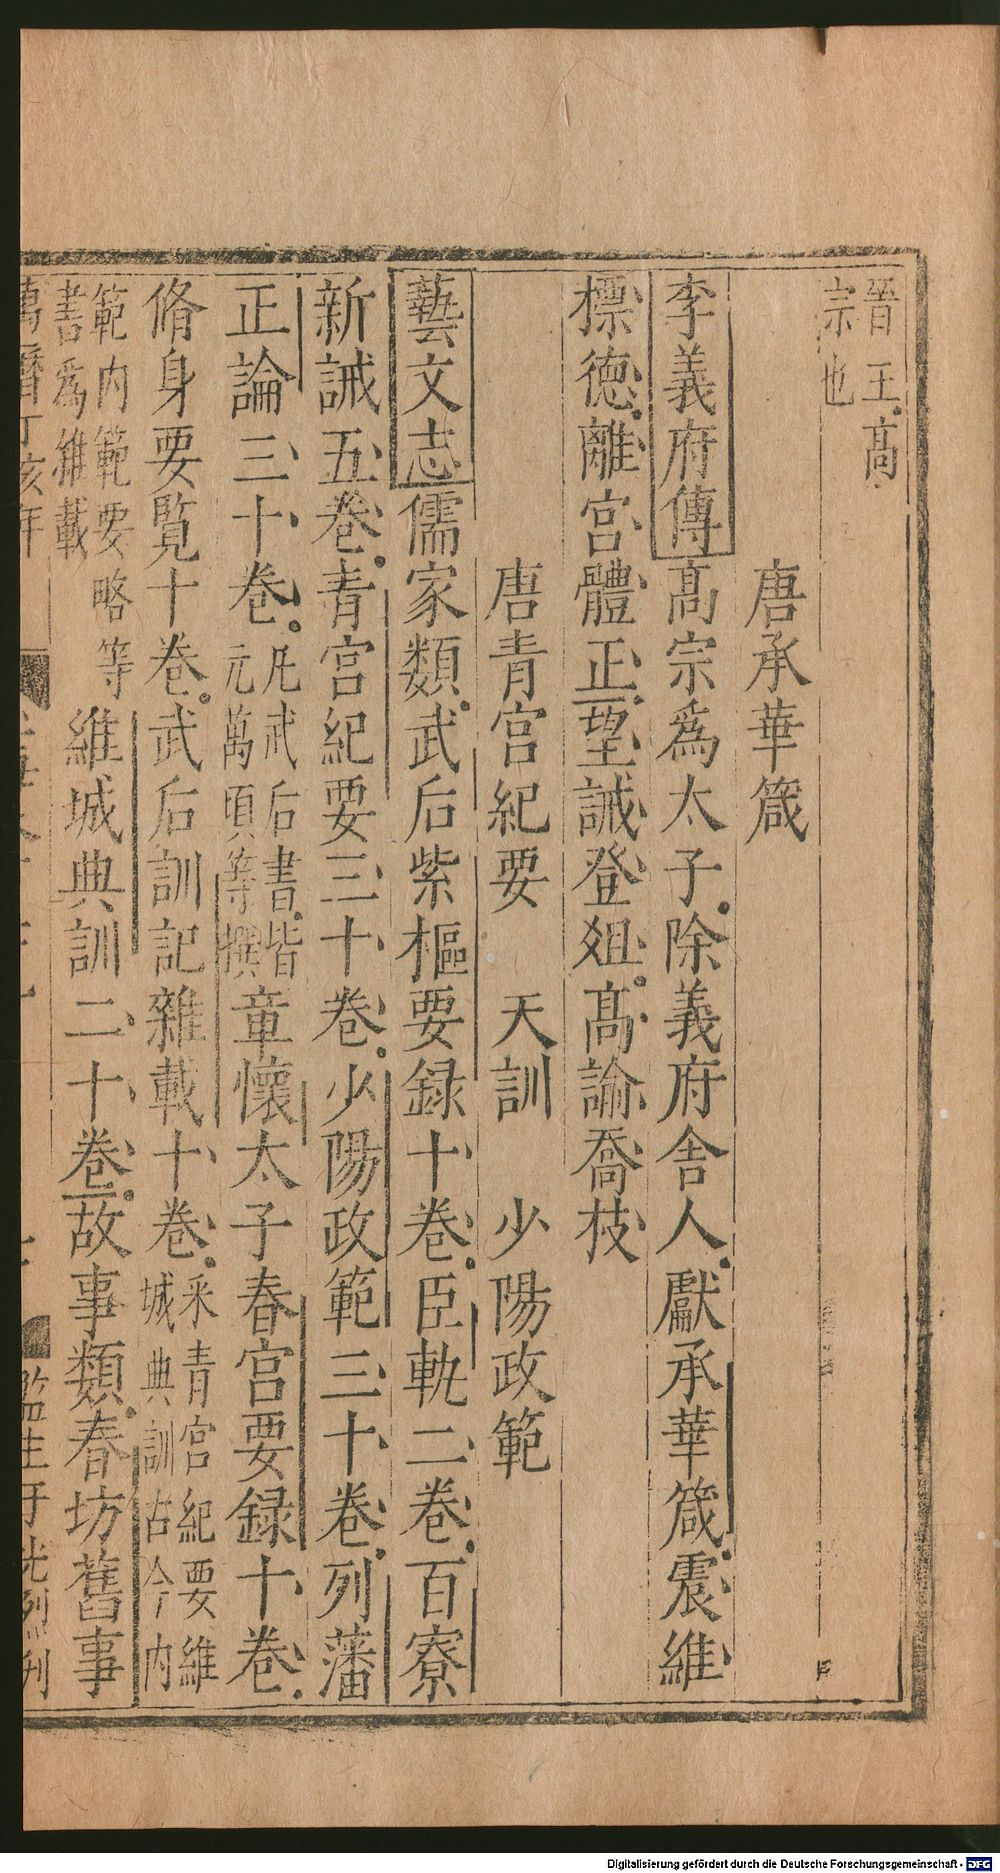 晉王高
宗也
唐承華箴
李義府傳高宗為太子除義府舍人獻承華箴震維
標德離宮體正望誡登俎高論喬枝
唐青宮紀要　天訓　少陽政範
藝文志儒家類武后紫樞要録十卷臣軌二卷百寮
新誡五卷青宮紀要三十卷少陽政範三十卷列藩
正論三十卷
凡武后書皆
元萬頃等撰
章懷太子春宮要録十卷
脩身要覧十卷武后訓記雜載十卷
采青宮紀要維
城典訓古今内
範内範要略等
書為雜載
維城典訓二十卷故事類春坊舊事
萬曆丁亥年
監生
刊
Digitalisierung gefördert durch die Deutsche Forschungsgemeinschaft - DFG